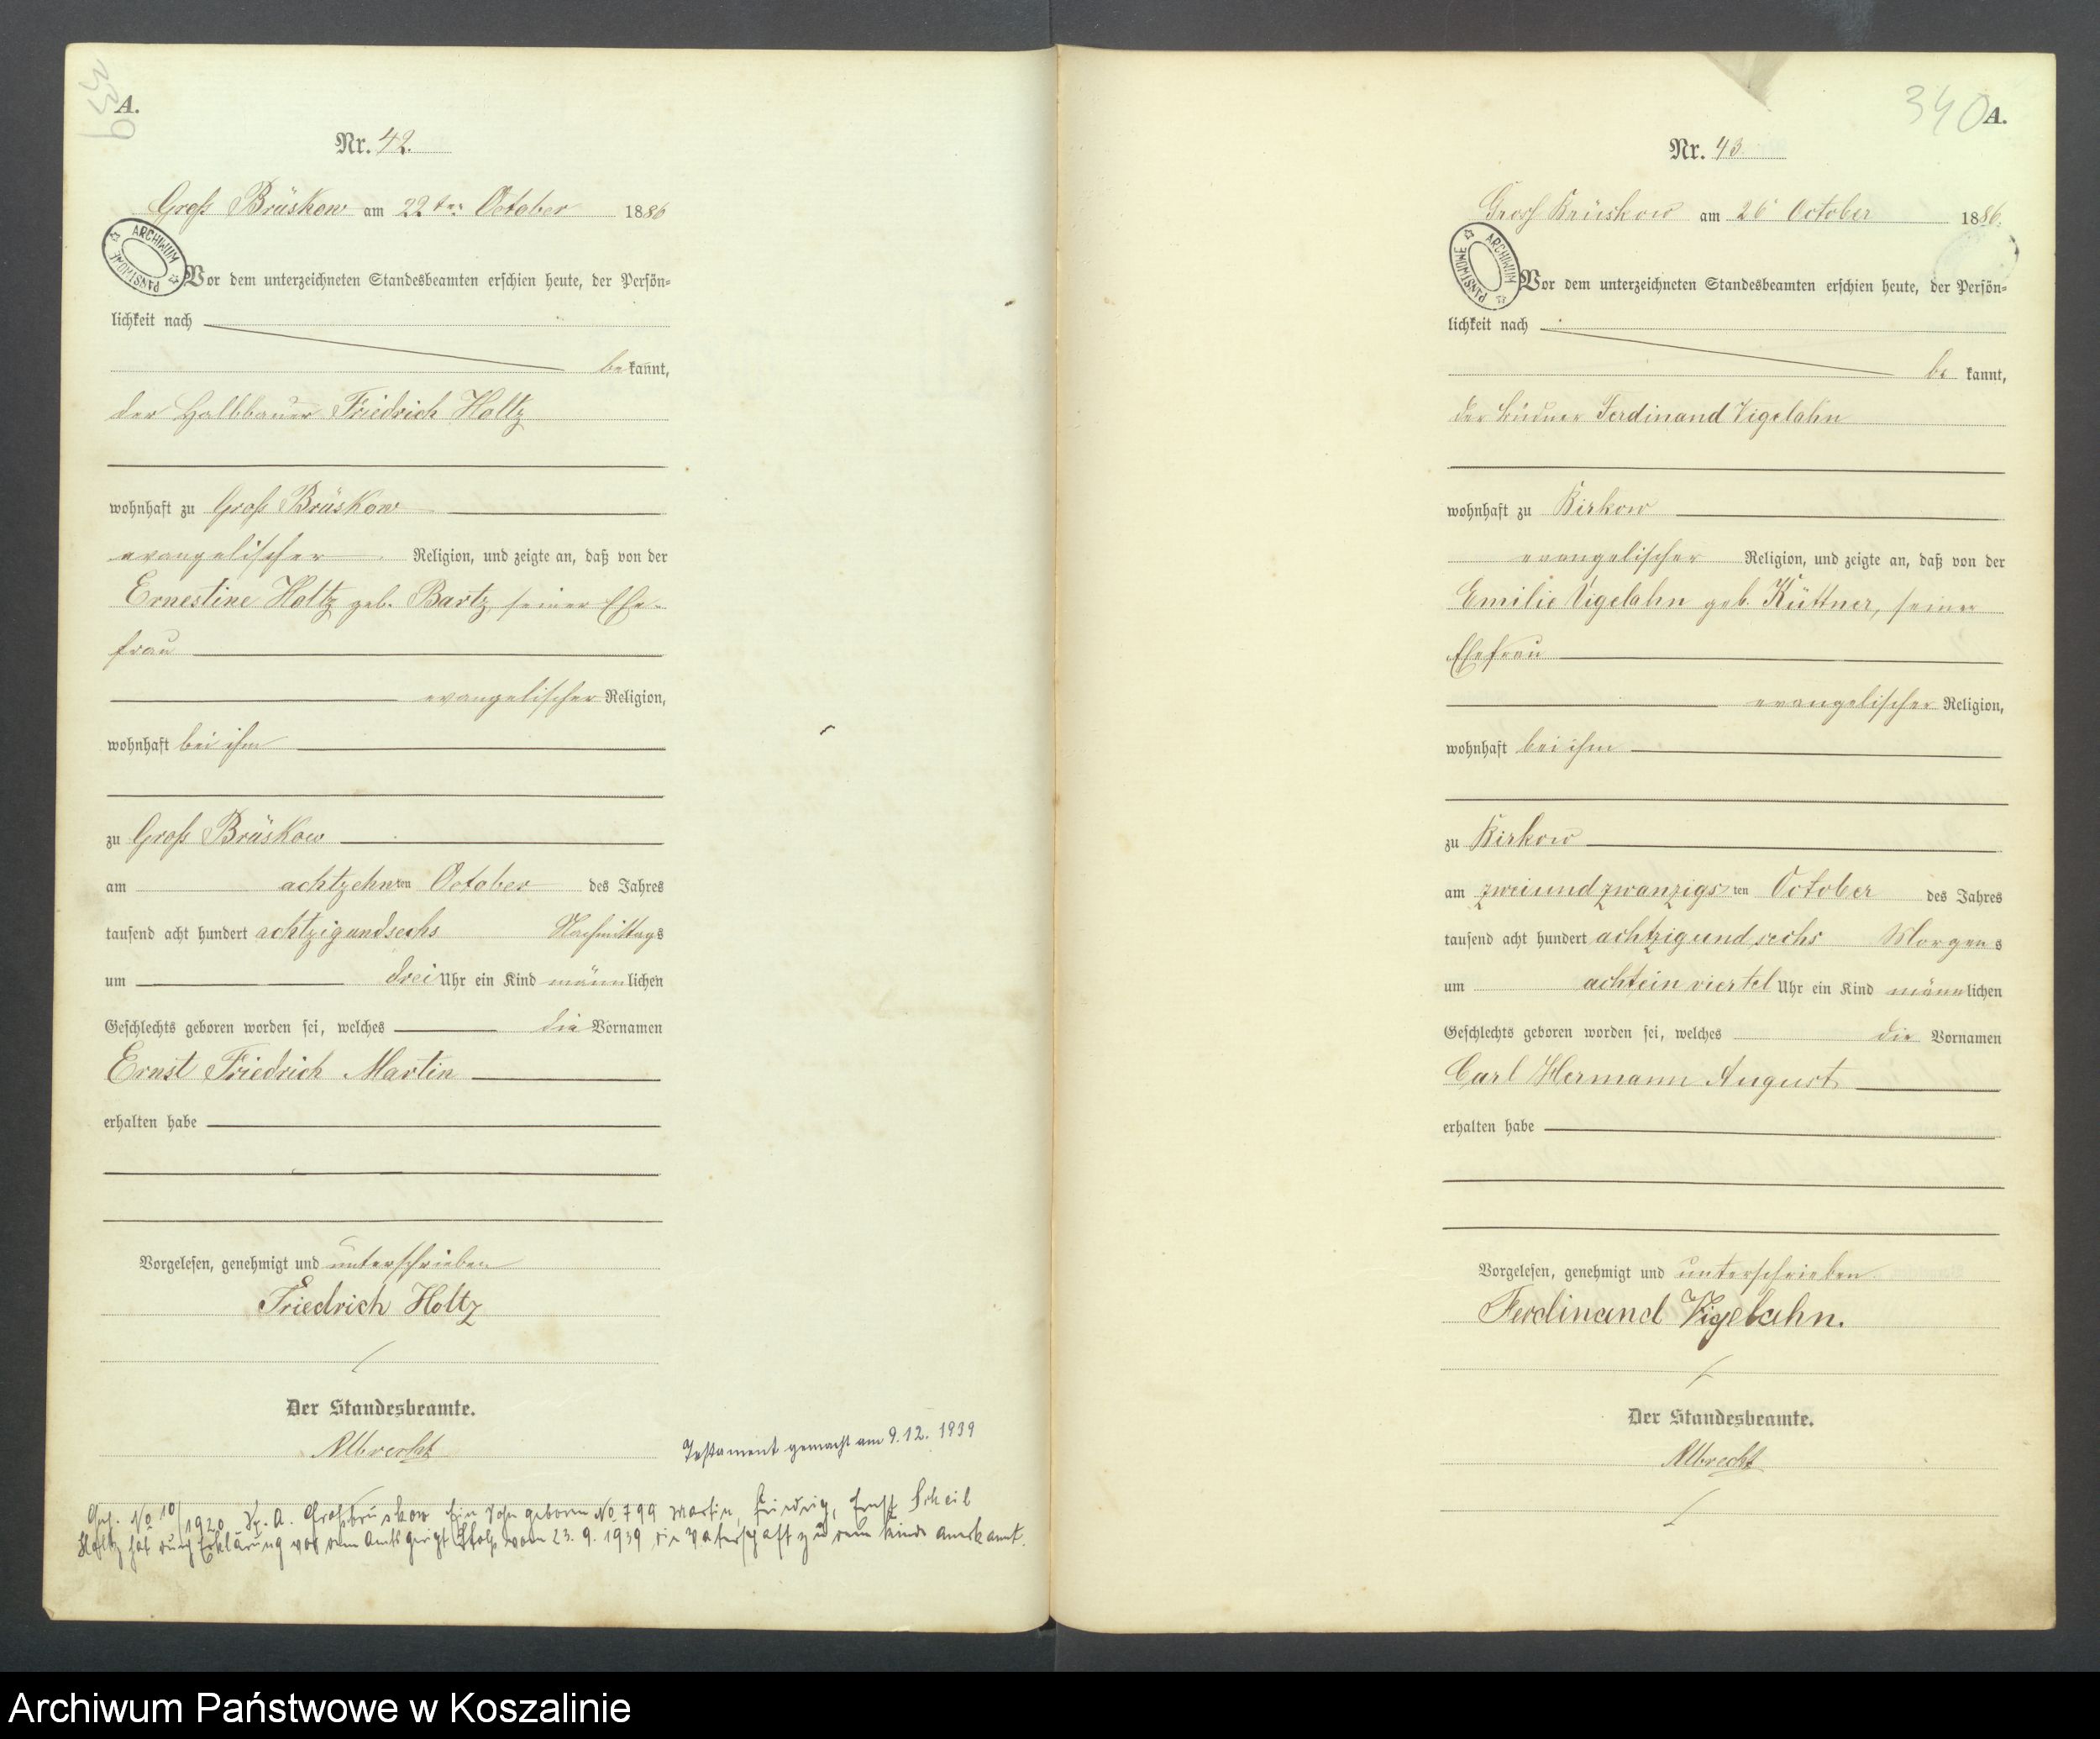 339
A.
Nr. 42.
Groß Brüskow am 22ten October 1886
ARCHIWUM PAŃSTWOWE
Vor dem unterzeichneten Standesbeamten erschien heute, der Persön-
lichkeit nach
bekannt,
der Halbbauer Friedrich Holtz
wohnhaft zu Groß Brüskow
evangelischer Religion, und zeigte an, daß von der
Ernestine Holtz geb. Bartz, seiner Ehe-
frau
evangelischer Religion,
wohnhaft bei ihm
zu Groß Brüskow
am achtzehnten October des Jahres
tausend acht hundert achtzigundsechs Nachmittags
um drei Uhr ein Kind männlichen
Geschlechts geboren worden sei, welches die Vornamen
Ernst Friedrich Martin
erhalten habe
Vorgelesen, genehmigt und unterschrieben
Friedrich Holtz
Der Standesbeamte.
Albrecht
Testament gemacht am 9.12. 1939
No 10/1920 St. A. Großbrüskow Ein Sohn geboren No. 799 Martin, Friedrich, Ernst Scheil
Holtz hat durch Erklärung vor dem Amtsgericht Stolp vom 23. 9. 1939 die Vaterschaft zu dem Kinde anerkannt.
340
A.
Nr. 43.
Gross Brüskow am 26 October 1886.
ARCHIWUM PAŃSTWOWE
Vor dem unterzeichneten Standesbeamten erschien heute, der Persön-
lichkeit nach
be kannt,
der Büdner Ferdinand Vigelahn
wohnhaft zu Birkow
evangelischer Religion, und zeigte an, daß von der
Emilie Vigelahn geb. Küttner, seiner
Ehefrau
evangelischer Religion,
wohnhaft bei ihm
zu Birkow
am zweiundzwanzigsten October des Jahres
tausend acht hundert achtzigundsechs Morgens
um achtein viertel Uhr ein Kind männlichen
Geschlechts geboren worden sei, welches die Vornamen
Carl Hermann August
erhalten habe
Vorgelesen, genehmigt und unterschrieben
Ferdinand Vigelahn.
Der Standesbeamte.
Albrecht
Archiwum Państwowe w Koszalinie